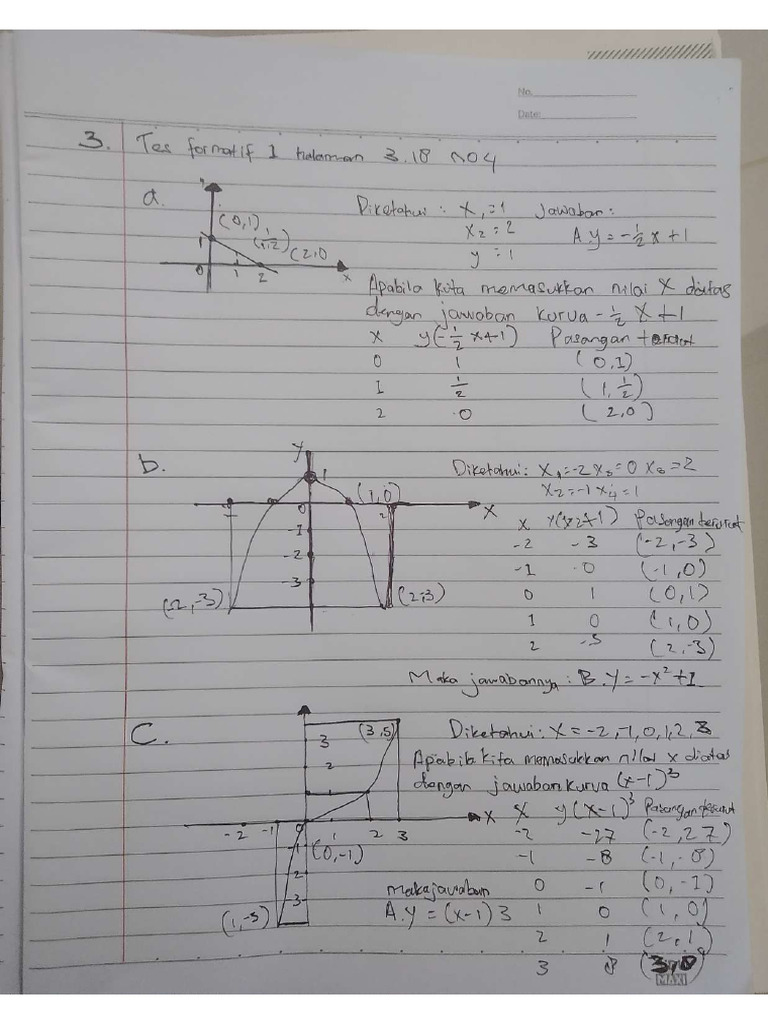 No.
Date:
3. Tes formatif 1 halaman 3.18 no 4
a.
(0,1)
(1,1/2)
(2,0
1
0
1
2
x
Diketahui : x₁=1 Jawaban:
x₂=2 A.y=-½x+1
y=1
Apabila kita memasukkan nilai x diatas
dengan jawaban kurva -½x+1
x y(-½x+1) Pasangan terurut
0 1 (0,1)
1 ½ (1,½)
2 0 (2,0)
b.
y
1
(1,0)
0
2
x
-1
-2
-3
(-2,-3)
(2,-3)
Diketahui: x₁=-2 x₃=0 x₅=2
x₂=-1 x₄=1
x Pasangan terurut
-2 -3 (-2,-3)
-1 0 (-1,0)
0 1 (0,1)
1 0 (1,0)
2 -3 (2,-3)
Maka jawabannya : B.Y=-x²+1
C.
3
(3,5)
2
-2 -1 0 1 2 3 x
(0,-1)
2
-3
(1,-5)
Diketahui: x=-2,-1,0,1,2,3
Apabila kita memasukkan nilai x diatas
dengan jawaban kurva (x-1)³
x y(x-1)³ Pasangan terurut
-2 -27 (-2,27)
-1 -8 (-1,-8)
0 -1 (0,-1)
1 0 (1,0)
2 1 (2,1)
3 8
maka jawaban
A.y=(x-1)3
MAXI